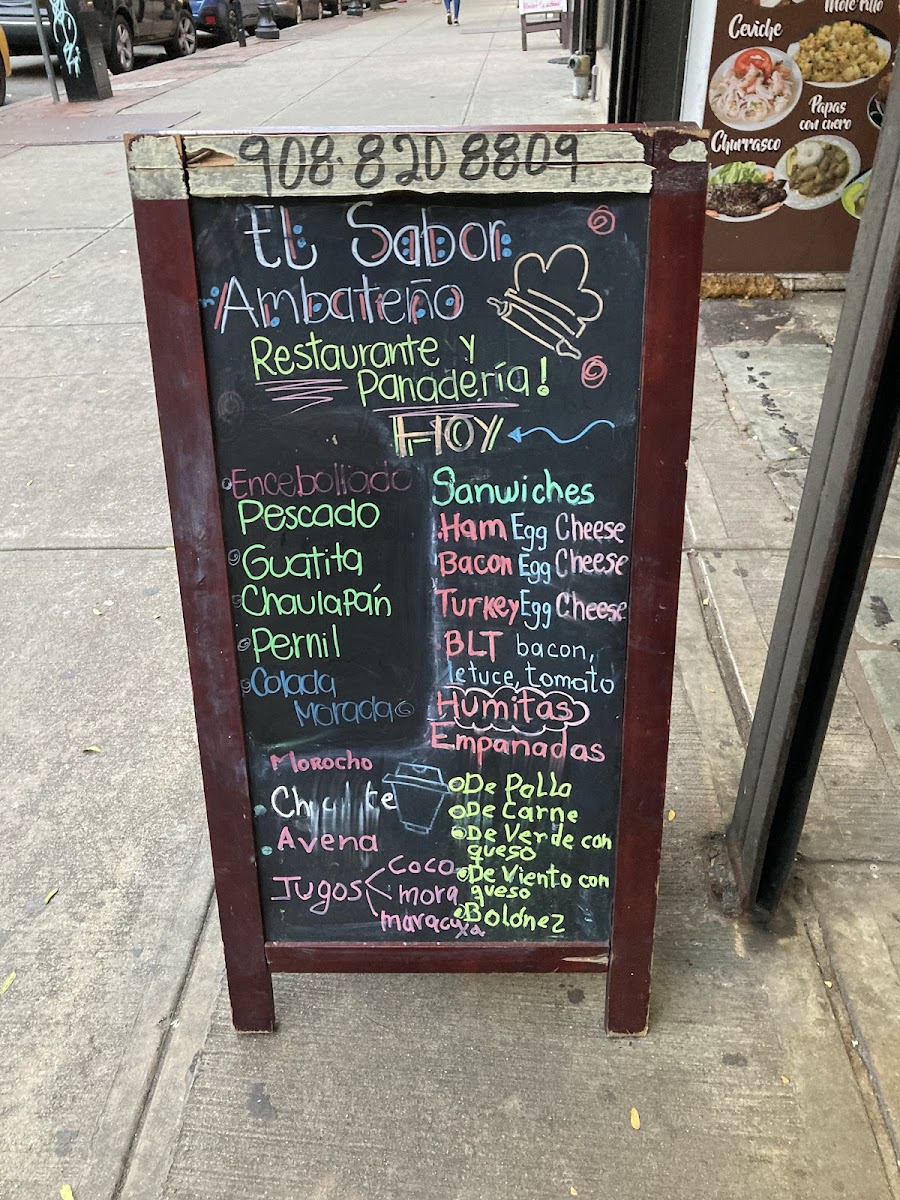 908·820 8809
EL Sabor
Ambateño
Restaurante y
Panadería!
HOY
Encebollado
Pescado
Guatita
Chaulafán
Pernil
Colada
Morada
Morocho
Avena
Jugos
Coco
mora
maracuya
Sanwiches
Ham Egg Cheese
Bacon Egg Cheese
Turkey Egg Cheese
BLT bacon,
letuce, tomato
Humitas
Empanadas
De Pollo
De Carne
De Verde con
queso
De Viento con
queso
Bolónez
Ceviche
Papas
con cuero
Churrasco